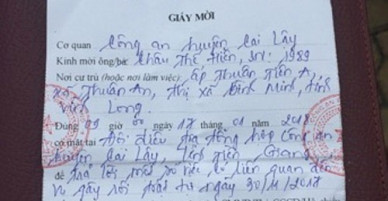 GIẤY MỜI
Cơ quan Công an huyện Cai Lậy
Kính mời ông/bà: Châu Thế Hiển, SN: 1989
Nơi cư trú (hoặc nơi làm việc): ấp Thuận Tiến A,
xã Thuận An, thị xã Bình Minh, tỉnh
Vĩnh Long.
Đúng 09 giờ 00 ngày 17 tháng 01 năm 2018
có mặt tại Đội điều tra tổng hợp Công an
huyện Cai Lậy, tỉnh Tiền Giang
để trao đổi một số việc có liên quan đến
vụ gây rối trật tự ngày 30/11/2017